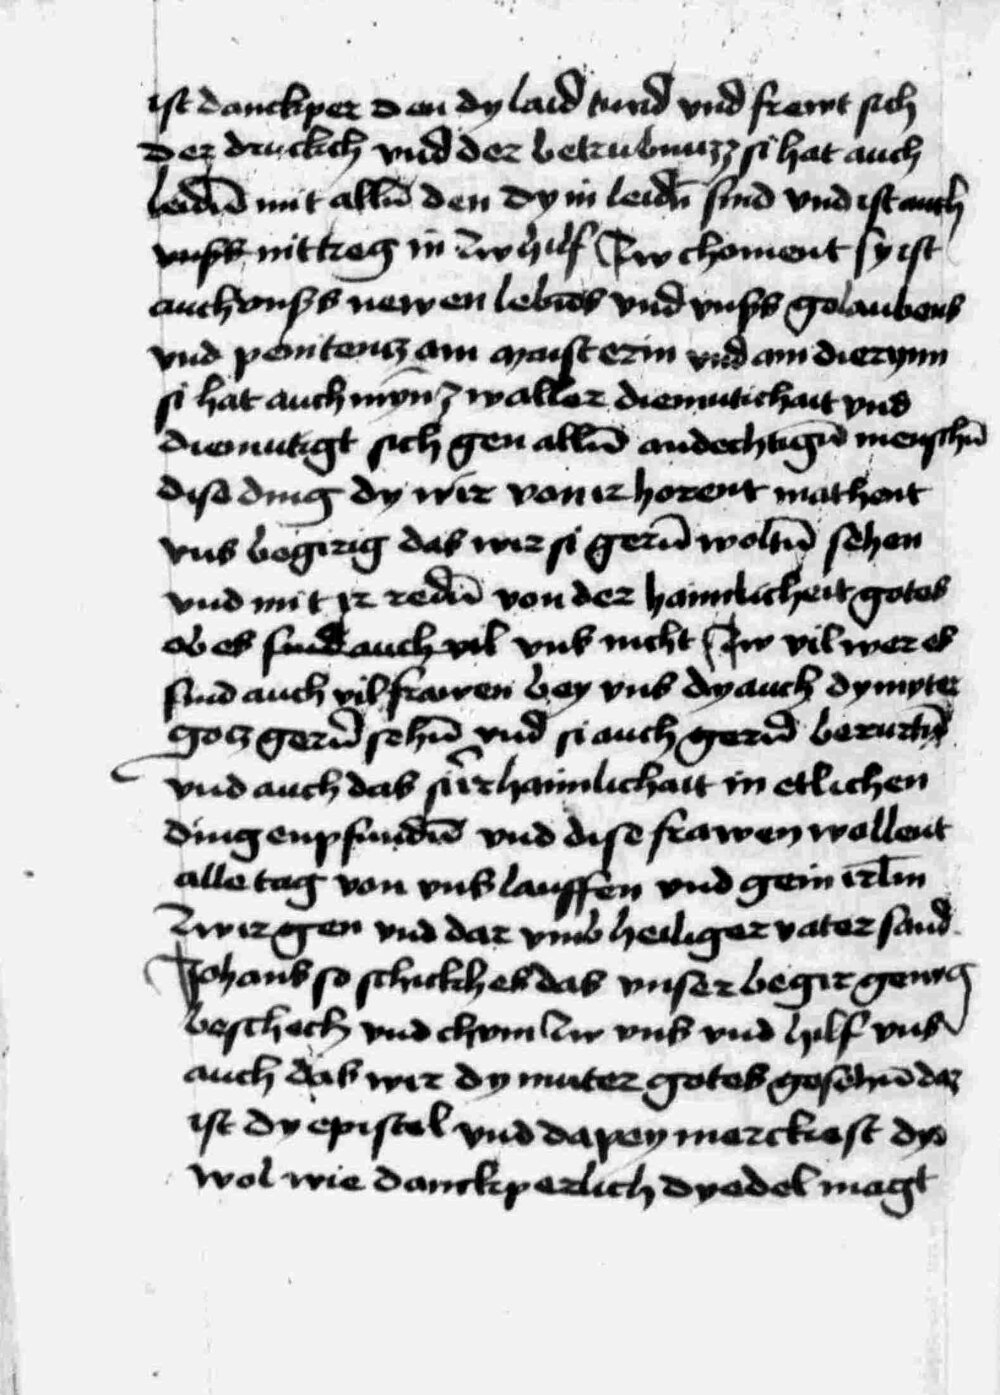 ist danckper den dy laid tund vnd frewt sich
der druckch vnd der betrubnuzz si hat auch
leidn̄ mit alln̄ den dy in leidn̄ sind vnd ist auch
vnsers nit treg in zw hilf zw choment sy ist
auch vnsers newen lebn̄s vnd vnsers gelaubens
vnd penitentz am maisterin vnd am dierynn
si hat auch mynn̄ zw aller diemutichait vnd
diemutigt sich gen alln̄ andechtign̄ menschn̄
dise ding dy wir von ir horent machent
vns begirig das wir si gern̄ woltn̄ sehen
vnd mit ir redn̄ von der haimlicheit gotes
ob es sind auch vil vns nicht zw vil wer es
sind auch vil frawen bey vns dy auch dy muter
gotz gern̄ sehn̄ vnd si auch gern̄ berurtn̄
vnd auch das si ir haimlichait in etlichen
ding enpfindn̄ vnd dise frawen wollent
alle tag von vns lauffen vnd gein irlm̄
zw ir gen vnd dar vmb heiliger vater sand
Johans so schickh es das vnser begir genug
beschech vnd chvm zw vns vnd hilf vns
auch das wir dy muter gotes gesehn̄ daz
ist dy epistel vnd dapey merckest dw
wol wie danckperlich dy edel magt